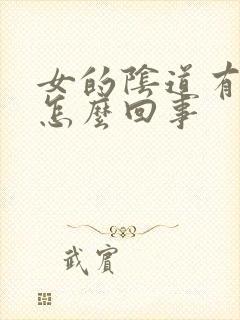 女的陰道有
怎麼回事
武賓